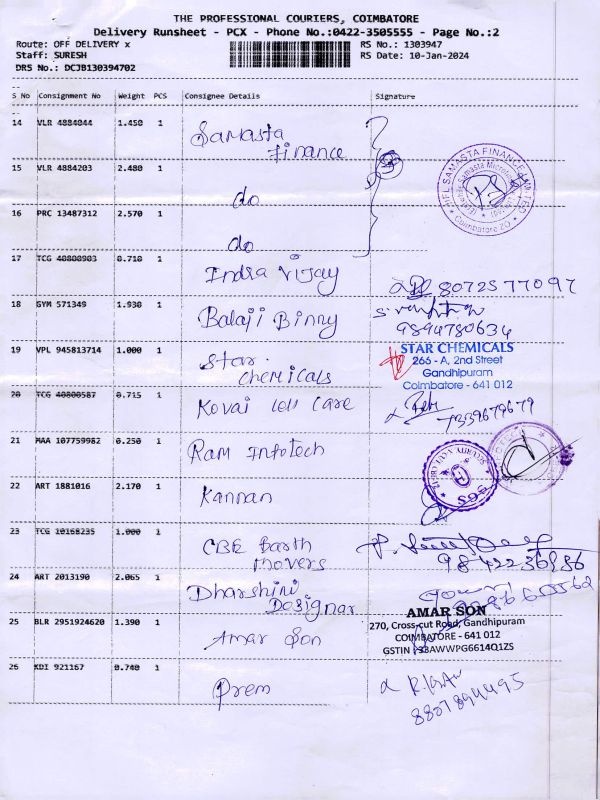 THE PROFESSIONAL COURIERS, COIMBATORE
Delivery Runsheet - PCX - Phone No.:0422-3505555 - Page No.:2
Route: OFF DELIVERY x RS No.: 1303947
Staff: SURESH RS Date: 10-Jan-2024
DRS No.: DCJB130394702
S No Consignment No Weight PCS Consignee Details Signature
14 VLR 4884044 1.450 1 Samasta
Finance
15 VLR 4884203 2.480 1 do
IIFL SAMASTA FINANCE LIMITED
Coimbatore ZO
16 PRC 13487312 2.570 1 do
17 TCG 40800903 0.710 1 Indra Vijay 8072577097
18 GYM 571349 1.930 1 Balaji Binny
9894780634
19 VPL 945813714 1.000 1 Star
Chemicals
STAR CHEMICALS
266 - A, 2nd Street
Gandhipuram
Coimbatore - 641 012
20 TCG 40800587 0.715 1 Kovai Care 7339679679
21 MAA 107759982 0.250 1 Ram Infotech
22 ART 1881016 2.170 1 Kannan
23 TCG 10168235 1.000 1 CBE Earth
Movers
9842236986
24 ART 2013190 2.065 1 Dharshini
Designar
25 BLR 2951924620 1.390 1 Amar Son
AMAR SON
270, Cross-cut Road, Gandhipuram
COIMBATORE - 641 012
GSTIN : 33AWWPG6614Q1ZS
26 KDI 921167 0.740 1 Prem